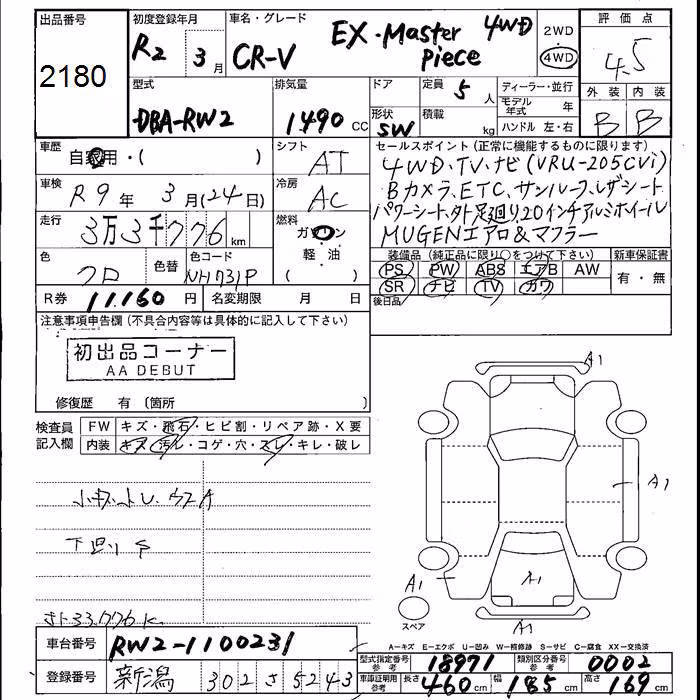 出品番号
2180
初度登録年月
R2 年 3月
車名・グレード
CR-V EX・Master piece 4WD
2WD
4WD
評価点
4.5
外装 内装
B B
型式
DBA-RW2
排気量
1490 CC
ドア
形状
SW
定員 5 人
積載 kg
ディーラー・並行
モデル年式 年
ハンドル 左・右
車歴
自家用・( )
シフト
AT
車検
R9年 3月(24日)
冷房
AC
走行
3万3千776 km
燃料
ガソリン
軽・油
( )
色
クロ
色替
色コード
NH731P
R券 11,160 円
名変期限 月 日
セールスポイント (正常に機能するものに限ります)
4WD、TV、ナビ(VRU-205CVi)
Bカメラ、ETC、サンルーフ、レザシート
パワーシート、外足廻り、20インチアルミホイール
MUGENエアロ&マフラー
装備品 (純正品に限り○をつけて下さい)
新車保証書
PS PW ABS エアB AW
SR ナビ TV カワ
有・無
後日品
注意事項申告欄 (不具合内容等は具体的に記入して下さい)
初出品コーナー
AA DEBUT
修復歴 有 〔箇所 〕
検査員記入欄
FW キズ・飛石・ヒビ割・リペア跡・X要
内装 キズ・汚レ・コゲ・穴・スレ・キレ・破レ
下回りサ
33.776K
A1
A1
A1
A1
A1
スペア
A-キズ E-エクボ U-凹み W-補修跡 S-サビ C-腐食 XX-交換済
車台番号
RW2-1100231
登録番号
新潟 302 す 5243
型式指定番号 参考 18971
類別区分番号 参考 0002
車庫証明用 参考
長さ 460 cm
幅 185 cm
高さ 169 cm